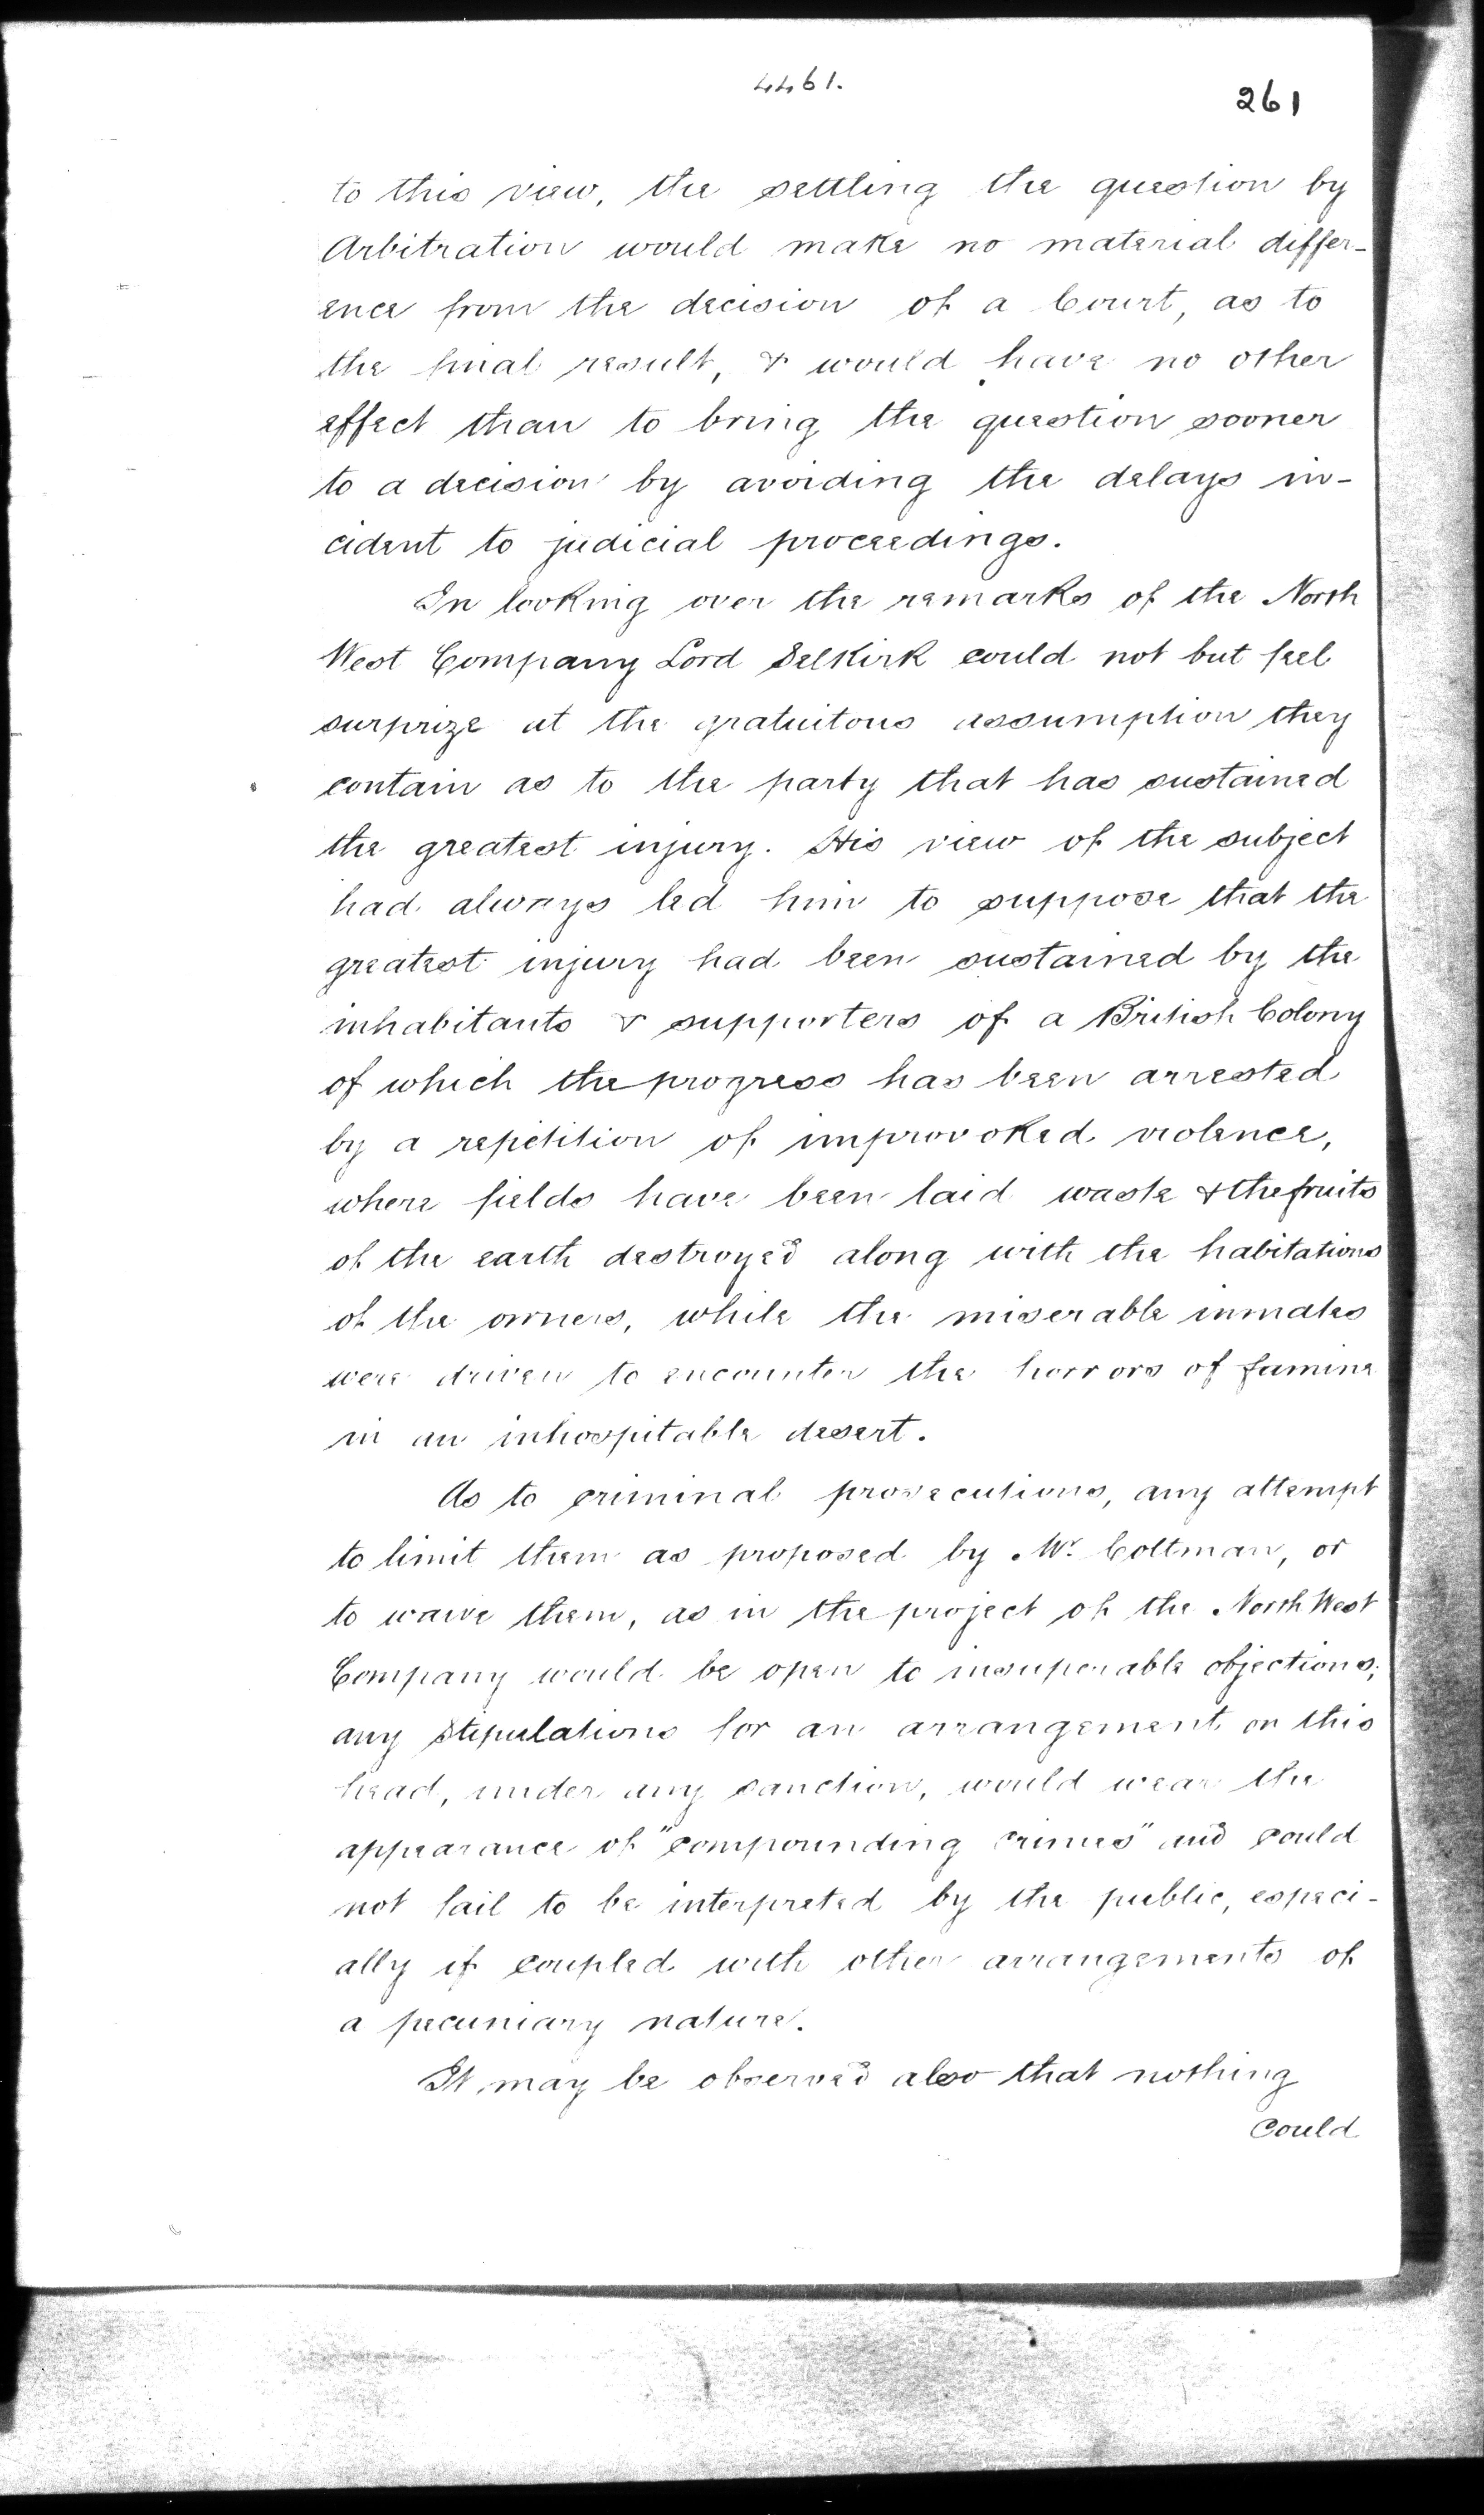 4461.
261
to this view, the settling the question by
Arbitration would make no material differ-
ence from the decision of a Court, as to
the final result, & would have no other
effect than to bring the question sooner
to a decision by avoiding the delays in-
cident to judicial proceedings.
In looking over the remarks of the North
West Company Lord Selkirk could not but feel
surprize at the gratuitous assumption they
contain as to the party that has sustained
the greatest injury. His view of the subject
had always led him to suppose that the
greatest injury had been sustained by the
inhabitants & supporters of a British Colony
of which the progress has been arrested
by a repetition of unprovoked violence,
where fields have been laid waste & the fruits
of the earth destroyed along with the habitations
of the owners, while the miserable inmates
were driven to encounter the horrors of famine
in an inhospitable desert.
As to criminal prosecutions, any attempt
to limit them as proposed by Mr. Coltman, or
to waive them, as in the project of the North West
Company would be open to insuperable objections;
any stipulations for an arrangement on this
head, under any sanction, would wear the
appearance of "compounding crimes" and could
not fail to be interpreted by the public, especi-
ally if coupled with other arrangements of
a pecuniary nature.
It may be observed also that nothing
Could